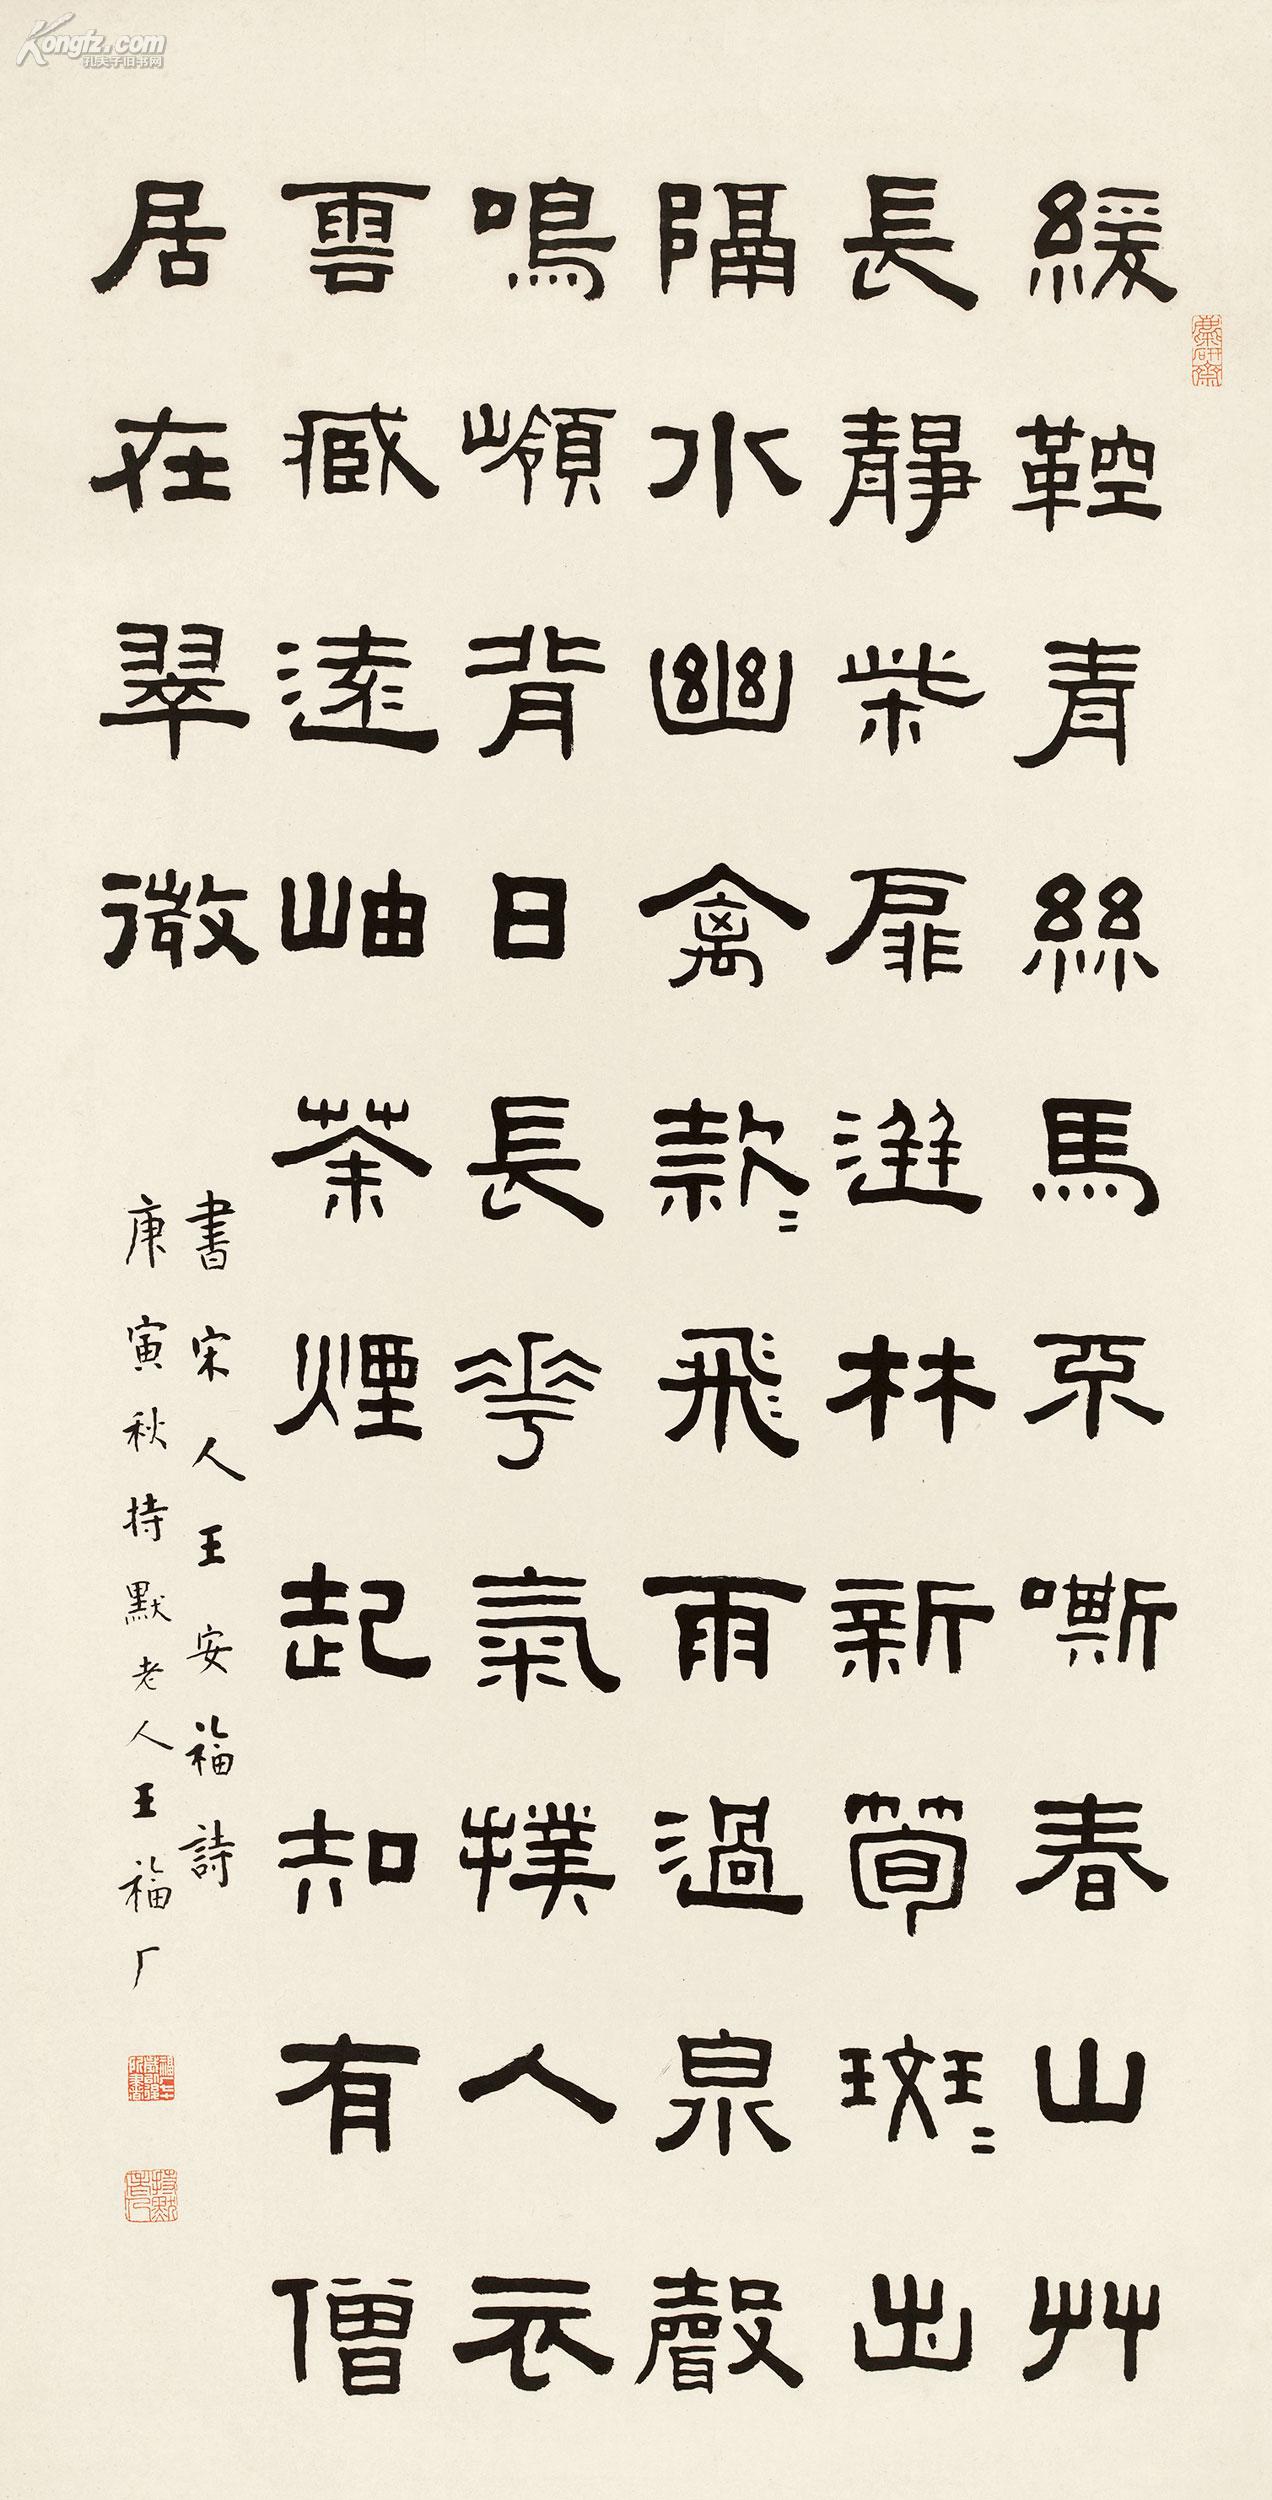 Kongfz.com
孔夫子旧书网
麋研齋
緩鞚青絲馬不嘶春山艸
長靜柴扉迸林新筍斑〻出
隔水幽禽款〻飛雨過泉聲
鳴嶺背日長華氣撲人衣
雲臧遠岫茶煙起知有僧
居在翠微
書宋人王安福詩
庚寅秋持默老人王福厂
持默老人